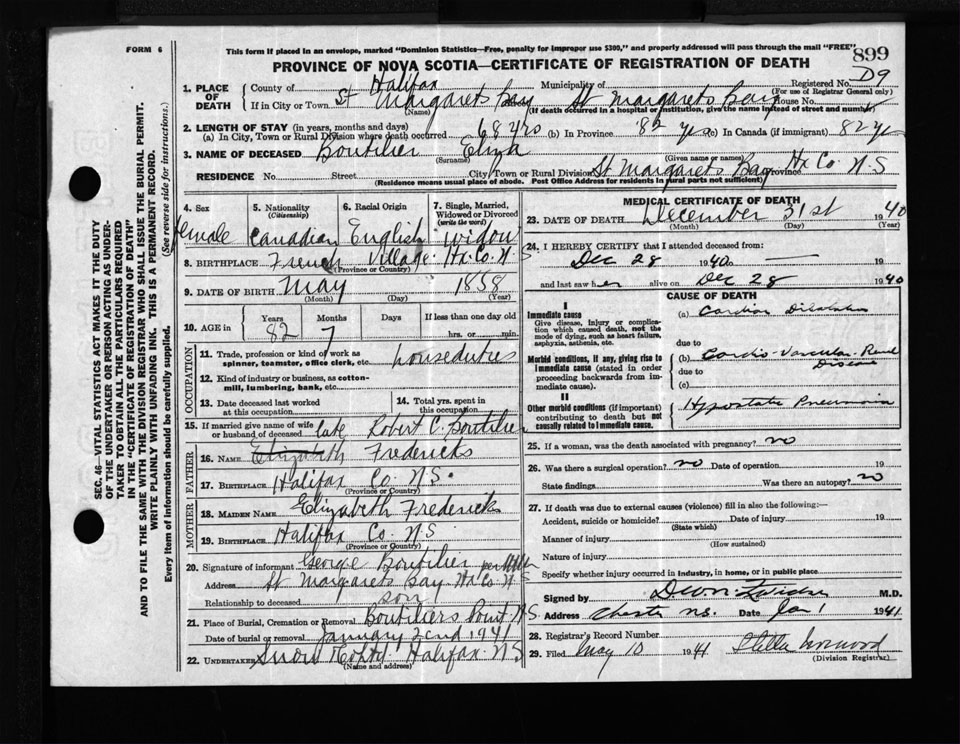 FORM 6
This form if placed in an envelope, marked "Dominion Statistics—Free, penalty for improper use $300," and properly addressed will pass through the mail "FREE"
899
PROVINCE OF NOVA SCOTIA—CERTIFICATE OF REGISTRATION OF DEATH
Registered No. D9
(For use of Registrar General only)
1. PLACE OF DEATH
County of Halifax
Municipality of
If in City or Town St Margarets Bay St Margarets Bay House No.
(Name) (If death occurred in a hospital or institution, give the name instead of street and number)
2. LENGTH OF STAY (in years, months and days)
(a) In City, Town or Rural Division where death occurred 68 yrs (b) In Province 82 yrs (c) In Canada (if immigrant) 82 yrs
3. NAME OF DECEASED Boutilier Eliza
(Surname) (Given name or names)
RESIDENCE No. Street City/Town or Rural Division St Margarets Bay Province Hx Co. N.S
(Residence means usual place of abode. Post Office Address for residents in rural parts not sufficient)
4. Sex
female
5. Nationality
(Citizenship)
Canadian
6. Racial Origin
English
7. Single, Married, Widowed or Divorced
(write the word)
widow
8. BIRTHPLACE French Village Hx. Co. N.S.
(Province or Country)
9. DATE OF BIRTH May 1858
(Month) (Day) (Year)
10. AGE in
Years Months Days If less than one day old
82 7 hrs. or min.
OCCUPATION
11. Trade, profession or kind of work as spinner, teamster, office clerk, etc. houseduties
12. Kind of industry or business, as cotton-mill, lumbering, bank, etc.
13. Date deceased last worked at this occupation
14. Total yrs. spent in this occupation
15. If married give name of wife or husband of deceased late Robert C. Boutilier
FATHER
16. NAME Elizabeth Fredericks
17. BIRTHPLACE Halifax Co. N.S.
(Province or Country)
MOTHER
18. MAIDEN NAME Elizabeth Fredericks
19. BIRTHPLACE Halifax Co. N.S
(Province or Country)
20. Signature of informant George Boutilier per
Address St Margarets Bay Hx Co. N.S
Relationship to deceased son
21. Place of Burial, Cremation or Removal Boutiliers Point N.S.
Date of burial or removal January 2nd 1941
22. UNDERTAKER Snow Halifax N.S
(Name and address)
MEDICAL CERTIFICATE OF DEATH
23. DATE OF DEATH December 31st 1940
(Month) (Day) (Year)
24. I HEREBY CERTIFY that I attended deceased from:
Dec 28 1940 to
and last saw her alive on Dec 28 1940
CAUSE OF DEATH
I
Immediate cause
Give disease, injury or complication which caused death, not the mode of dying, such as heart failure, asphyxia, asthenia, etc.
(a) Cardiac Dilatation
due to
Morbid conditions, if any, giving rise to immediate cause (stated in order proceeding backwards from immediate cause).
(b) Cardio-Vascular-Renal Disease
due to
(c)
II
Other morbid conditions (if important) contributing to death but not causally related to immediate cause.
Hypostatic Pneumonia
25. If a woman, was the death associated with pregnancy? no
26. Was there a surgical operation? no Date of operation 19
State findings Was there an autopsy? no
27. If death was due to external causes (violence) fill in also the following:—
Accident, suicide or homicide? Date of injury 19
(State which)
Manner of injury
(How sustained)
Nature of injury
Specify whether injury occurred in industry, in home, or in public place
Signed by M.D.
Address Chester N.S. Date Jan 1 1941
28. Registrar's Record Number
29. Filed May 10 1941 Stella
(Division Registrar)
SEC. 46—VITAL STATISTICS ACT MAKES IT THE DUTY
OF THE UNDERTAKER OR PERSON ACTING AS UNDERTAKER TO OBTAIN ALL THE PARTICULARS REQUIRED
IN THE "CERTIFICATE OF REGISTRATION OF DEATH"
AND TO FILE THE SAME WITH THE DIVISION REGISTRAR WHO SHALL ISSUE THE BURIAL PERMIT.
WRITE PLAINLY WITH UNFADING INK. THIS IS A PERMANENT RECORD.
Every item of information should be carefully supplied. (See reverse side for instructions.)